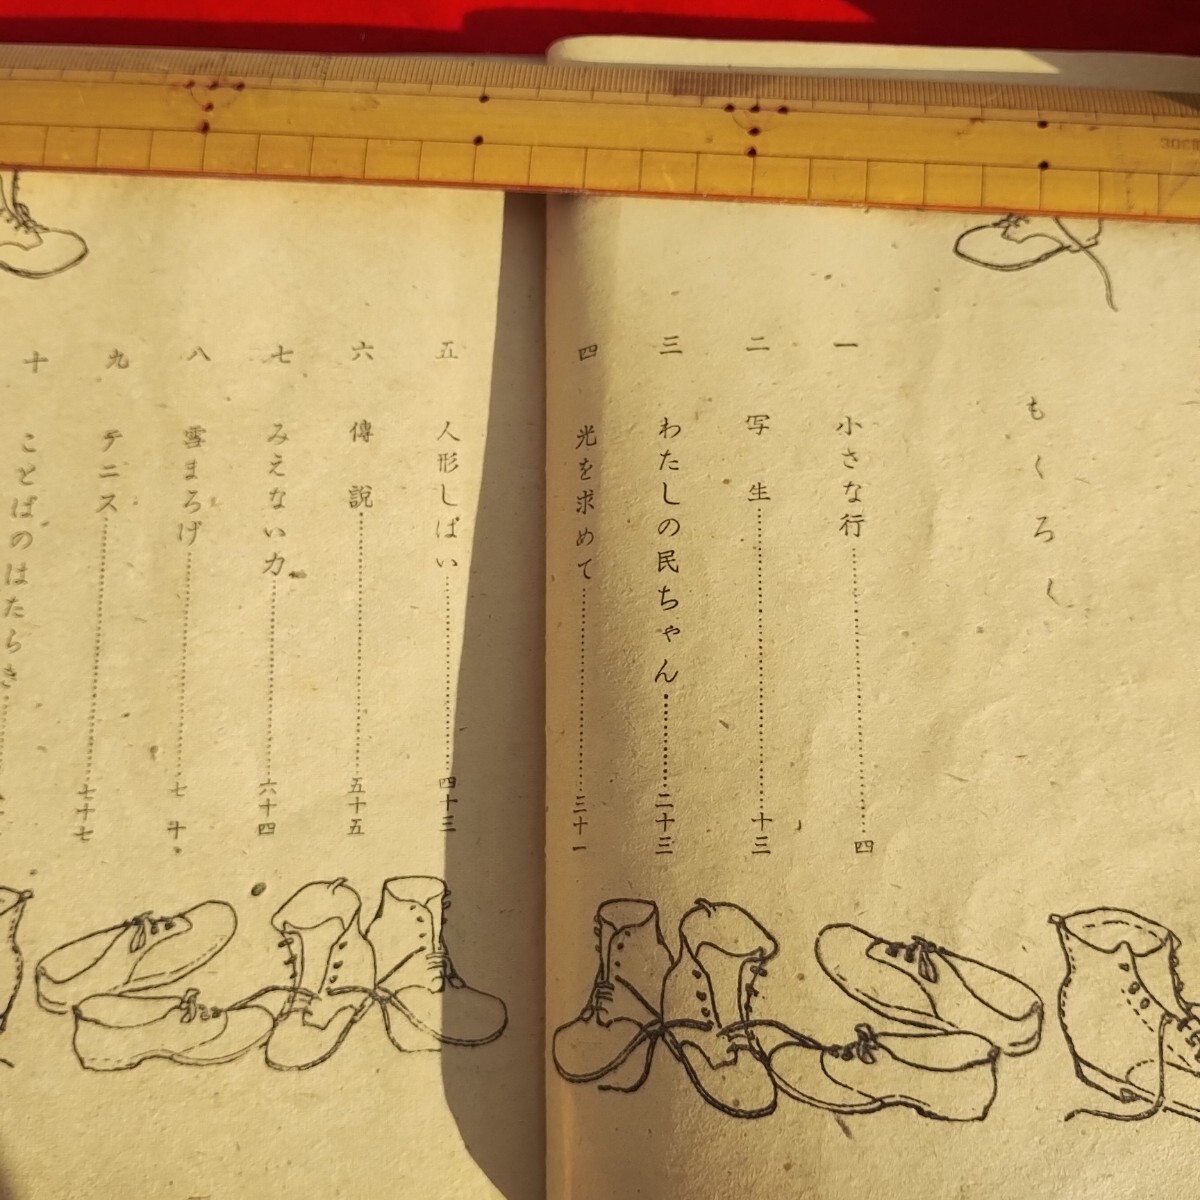 もくろく
一 小さな行……四
二 写生……十三
三 わたしの民ちゃん……二十三
四 光を求めて……三十一
五 人形しばい……四十三
六 傳說……五十五
七 みえない力……六十四
八 雪まろげ……七十
九 テニス……七十七
十 ことばのはたらき……